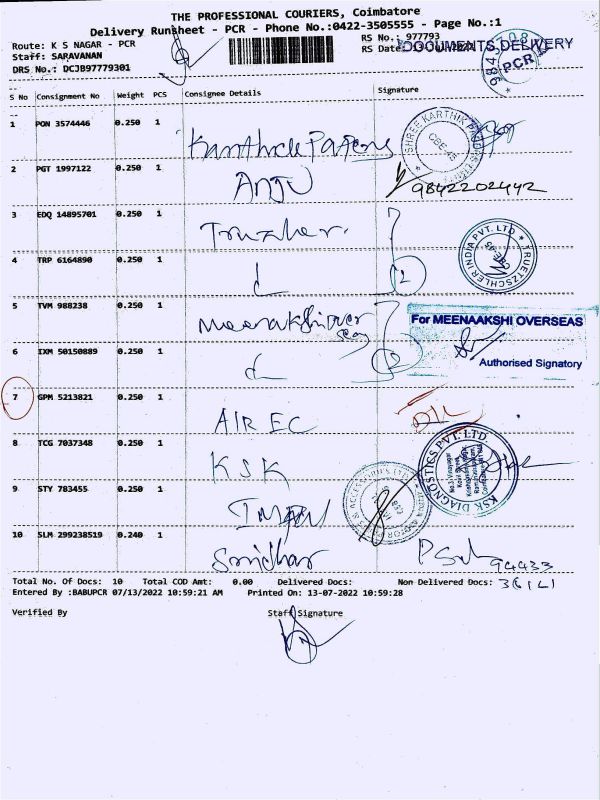 THE PROFESSIONAL COURIERS, Coimbatore
Delivery Runsheet - PCR - Phone No.:0422-3505555 - Page No.:1
Route: K S NAGAR - PCR
RS No.: 977793
Staff: SARAVANAN
RS Date:
DOCUMENTS DELIVERY
DRS No.: DCJB97779301
PCR
S No Consignment No Weight PCS Consignee Details Signature
1 PON 3574446 0.250 1
SHREE KARTHIK PAPERS
CBE-45
2 PGT 1997122 0.250 1 ANJU 9842202442
3 EDQ 14895701 0.250 1
TRUETZSCHLER INDIA PVT. LTD
4 TRP 6164890 0.250 1 2
5 TVM 988238 0.250 1 Meenakshi over seas
For MEENAAKSHI OVERSEAS
6 IXM 50150889 0.250 1 2
Authorised Signatory
7 GPM 5213821 0.250 1 AIR EC
8 TCG 7037348 0.250 1 KSK
KSK DIAGNOSTICS PVT. LTD
9 STY 783455 0.250 1
10 SLM 299238519 0.240 1 Sridhar 94433
Total No. Of Docs: 10 Total COD Amt: 0.00 Delivered Docs: Non Delivered Docs:
Entered By :BABUPCR 07/13/2022 10:59:21 AM Printed On: 13-07-2022 10:59:28
Verified By Staff Signature